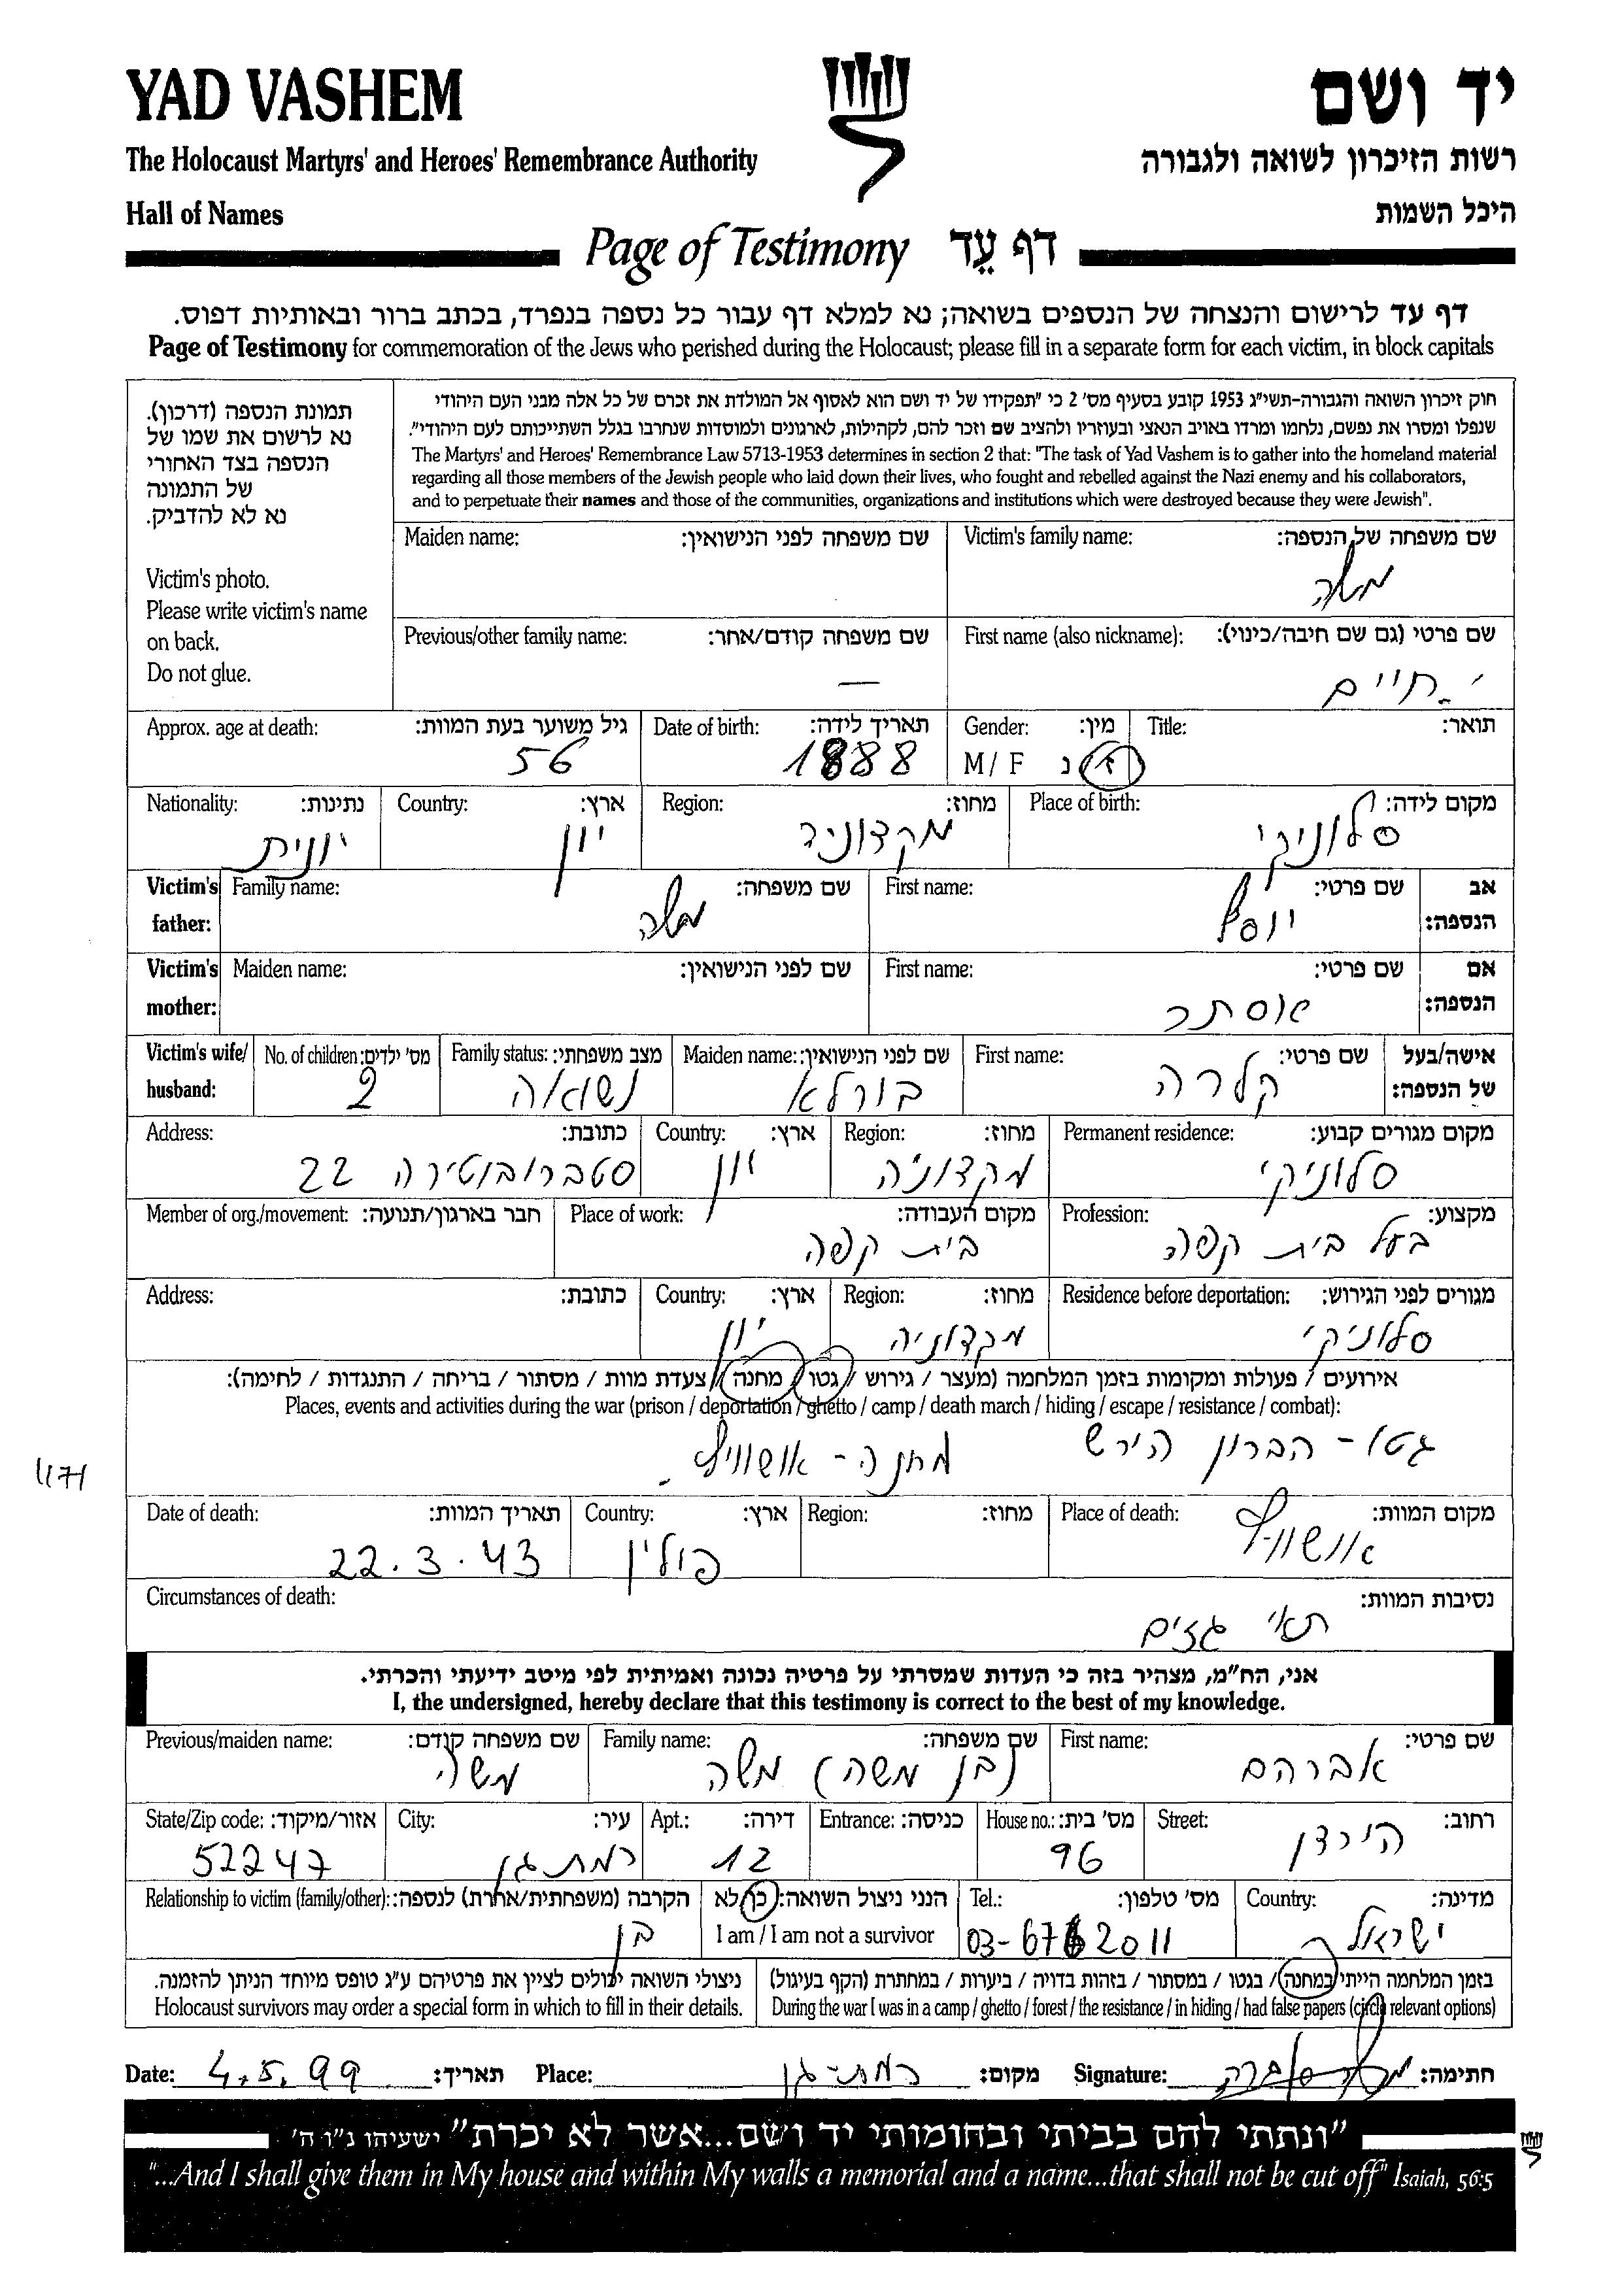 YAD VASHEM
יד ושם
The Holocaust Martyrs' and Heroes' Remembrance Authority
רשות הזיכרון לשואה ולגבורה
Hall of Names
היכל השמות
Page of Testimony דף עֵד
דף עד לרישום והנצחה של הנספים בשואה; נא למלא דף עבור כל נספה בנפרד, בכתב ברור ובאותיות דפוס.
Page of Testimony for commemoration of the Jews who perished during the Holocaust; please fill in a separate form for each victim, in block capitals
תמונת הנספה (דרכון).
נא לרשום את שמו של
הנספה בצד האחורי
של התמונה
נא לא להדביק.
Victim's photo.
Please write victim's name
on back.
Do not glue.
חוק זיכרון השואה והגבורה-תשי"ג 1953 קובע בסעיף מס' 2 כי "תפקידו של יד ושם הוא לאסוף אל המולדת את זכרם של כל אלה מבני העם היהודי
שנפלו ומסרו את נפשם, נלחמו ומרדו באויב הנאצי ובעוזריו ולהציב שם וזכר להם, לקהילות, לארגונים ולמוסדות שנחרבו בגלל השתייכותם לעם היהודי".
The Martyrs' and Heroes' Remembrance Law 5713-1953 determines in section 2 that: "The task of Yad Vashem is to gather into the homeland material
regarding all those members of the Jewish people who laid down their lives, who fought and rebelled against the Nazi enemy and his collaborators,
and to perpetuate their names and those of the communities, organizations and institutions which were destroyed because they were Jewish".
שם משפחה של הנספה: Victim's family name: שם משפחה לפני הנישואין: Maiden name:
משה
שם פרטי (גם שם חיבה/כינוי): First name (also nickname): שם משפחה קודם/אחר: Previous/other family name:
חיים —
תואר: Title: מין: Gender: תאריך לידה: Date of birth: גיל משוער בעת המוות: Approx. age at death:
ז/נ M / F 1888 56
מקום לידה: Place of birth: מחוז: Region: ארץ: Country: נתינות: Nationality:
סלוניקי מקדוניה יוון יוונית
אב הנספה: שם פרטי: First name: שם משפחה: Family name: Victim's father:
יוסף משה
אם הנספה: שם פרטי: First name: שם לפני הנישואין: Maiden name: Victim's mother:
אסתר
אישה/בעל של הנספה: שם פרטי: First name: שם לפני הנישואין: Maiden name: מצב משפחתי: Family status: מס' ילדים: No. of children: Victim's wife/ husband:
קלרה בורלא נשוא/ה 2
מקום מגורים קבוע: Permanent residence: מחוז: Region: ארץ: Country: כתובת: Address:
סלוניקי מקדוניה יוון 22
מקצוע: Profession: מקום העבודה: Place of work: חבר בארגון/תנועה: Member of org./movement:
בעל בית קפה בית קפה
מגורים לפני הגירוש: Residence before deportation: מחוז: Region: ארץ: Country: כתובת: Address:
סלוניקי מקדוניה יוון
אירועים / פעולות ומקומות בזמן המלחמה (מעצר / גירוש / גטו / מחנה / צעדת מוות / מסתור / בריחה / התנגדות / לחימה):
Places, events and activities during the war (prison / deportation / ghetto / camp / death march / hiding / escape / resistance / combat):
גטו - הברון הירש מחנה - אושוויץ
מקום המוות: Place of death: מחוז: Region: ארץ: Country: תאריך המוות: Date of death:
אושוויץ פולין 22.3.43
נסיבות המוות: Circumstances of death:
תאי גזים
אני, הח"מ, מצהיר בזה כי העדות שמסרתי על פרטיה נכונה ואמיתית לפי מיטב ידיעתי והכרתי.
I, the undersigned, hereby declare that this testimony is correct to the best of my knowledge.
שם פרטי: First name: שם משפחה: Family name: שם משפחה קודם: Previous/maiden name:
אברהם (בן משה) משה משה
רחוב: Street: מס' בית: House no.: כניסה: Entrance: דירה: Apt.: עיר: City: אזור/מיקוד: State/Zip code:
הירדן 96 12 רמת גן 52247
מדינה: Country: מס' טלפון: Tel.: הנני ניצול השואה: כן/לא הקרבה (משפחתית/אחרת) לנספה: Relationship to victim (family/other):
ישראל 03-6762011 I am / I am not a survivor בן
בזמן המלחמה הייתי במחנה / בגטו / במסתור / בזהות בדויה / ביערות / במחתרת (הקף בעיגול)
During the war I was in a camp / ghetto / forest / the resistance / in hiding / had false papers (circle relevant options)
ניצולי השואה יכולים לציין את פרטיהם ע"ג טופס מיוחד הניתן להזמנה.
Holocaust survivors may order a special form in which to fill in their details.
חתימה: Signature: מקום: רמת-גן Place: תאריך: 4.5.99 Date:
"ונתתי להם בביתי ובחומותי יד ושם...אשר לא יכרת" ישעיהו נ"ו ה'
"...And I shall give them in My house and within My walls a memorial and a name...that shall not be cut off" Isaiah, 56:5